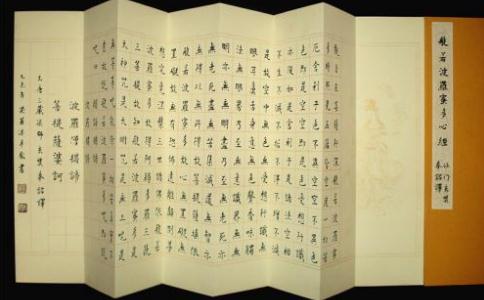 般若波羅蜜多心經
沙門玄奘
奉詔譯
觀自在菩薩行深般若波羅蜜
多時照見五蘊皆空度一切苦
厄舍利子色不異空空不異色
色即是空空即是色受想行識
亦復如是舍利子是諸法空相
不生不滅不垢不淨不增不減
是故空中無色無受想行識無
眼耳鼻舌身意無色聲香味觸
法無眼界乃至無意識界無無
明亦無無明盡乃至無老死亦
無老死盡無苦集滅道無智亦
無得以無所得故菩提薩埵依
般若波羅蜜多故心無罣礙無
罣礙故無有恐怖遠離顛倒夢
想究竟涅槃三世諸佛依般若
波羅蜜多故得阿耨多羅三藐
三菩提故知般若波羅蜜多是
大神咒是大明咒是無上咒是
無等等咒能除一切苦真實不
虛故說般若波羅蜜多咒即說
咒曰揭諦揭諦
波羅揭諦
波羅僧揭諦
菩提薩婆訶
大唐三藏法師玄奘奉詔譯